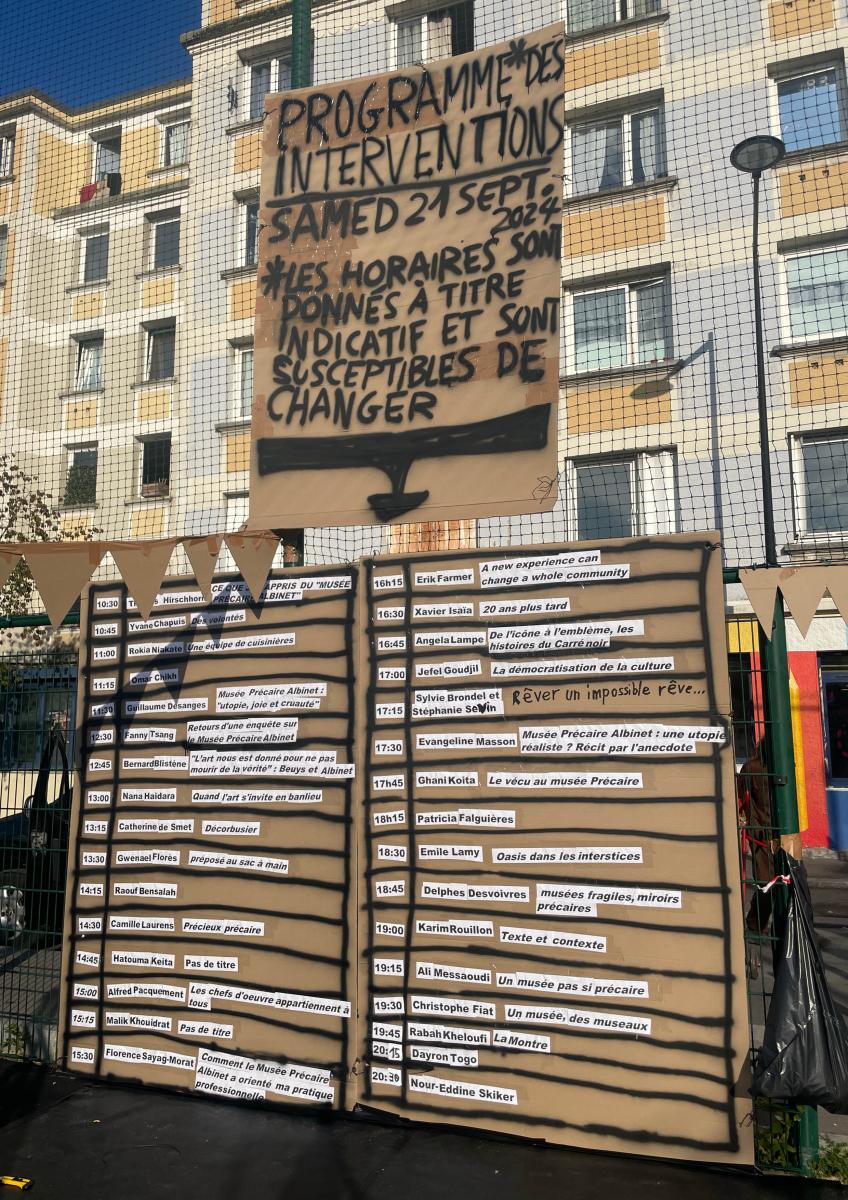 PROGRAMME*DES
INTERVENTIONS
SAMEDI 21 SEPT.
2024
*LES HORAIRES SONT
DONNÉS À TITRE
INDICATIF ET SONT
SUSCEPTIBLES DE
CHANGER
10:30 Hirschhorn CE QUE APPRIS DU "MUSÉE
PRÉCAIRE ALBINET"
10:45 Yvane Chapuis Des volontés
11:00 Rokia Niakate Une équipe de cuisinières
11:15 Omar Chikh
11:30 Guillaume Désanges Musée Précaire Albinet :
"utopie, joie et cruauté"
12:30 Fanny Tsang Retours d'une enquête sur
le Musée Précaire Albinet
12:45 Bernard Blistène "L'art nous est donné pour ne pas
mourir de la vérité" : Beuys et Albinet
13:00 Nana Haidara Quand l'art s'invite en banlieu
13:15 Catherine de Smet Décorbusier
13:30 Gwenael Florès préposé au sac à main
14:15 Raouf Bensalah
14:30 Camille Laurens Précieux précaire
14:45 Hatouma Keita Pas de titre
15:00 Alfred Pacquement Les chefs d'oeuvre appartiennent à
tous
15:15 Malik Khouidrat Pas de titre
15:30 Florence Sayag-Morat Comment le Musée Précaire
Albinet a orienté ma pratique
professionnelle
16h15 Erik Farmer A new experience can
change a whole community
16:30 Xavier Isaïa 20 ans plus tard
16:45 Angela Lampe De l'icône à l'emblème, les
histoires du Carré noir
17:00 Jefel Goudjil La démocratisation de la culture
17:15 Sylvie Brondel et
Stéphanie Sevin Rêver un impossible rêve...
17:30 Evangeline Masson Musée Précaire Albinet : une utopie
réaliste ? Récit par l'anecdote
17h45 Ghani Koita Le vécu au musée Précaire
18h15 Patricia Falguières
18:30 Emile Lamy Oasis dans les interstices
18:45 Delphes Desvoivres musées fragiles, miroirs
précaires
19:00 Karim Rouillon Texte et contexte
19:15 Ali Messaoudi Un musée pas si précaire
19:30 Christophe Fiat Un musée, des museaux
19:45 Rabah Kheloufi La Montre
20:15 Dayron Togo
20:30 Nour-Eddine Skiker